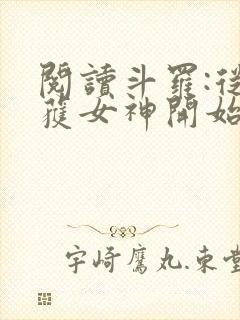 閱讀斗羅:從
獲女神開始
宇崎鷹丸.東堂